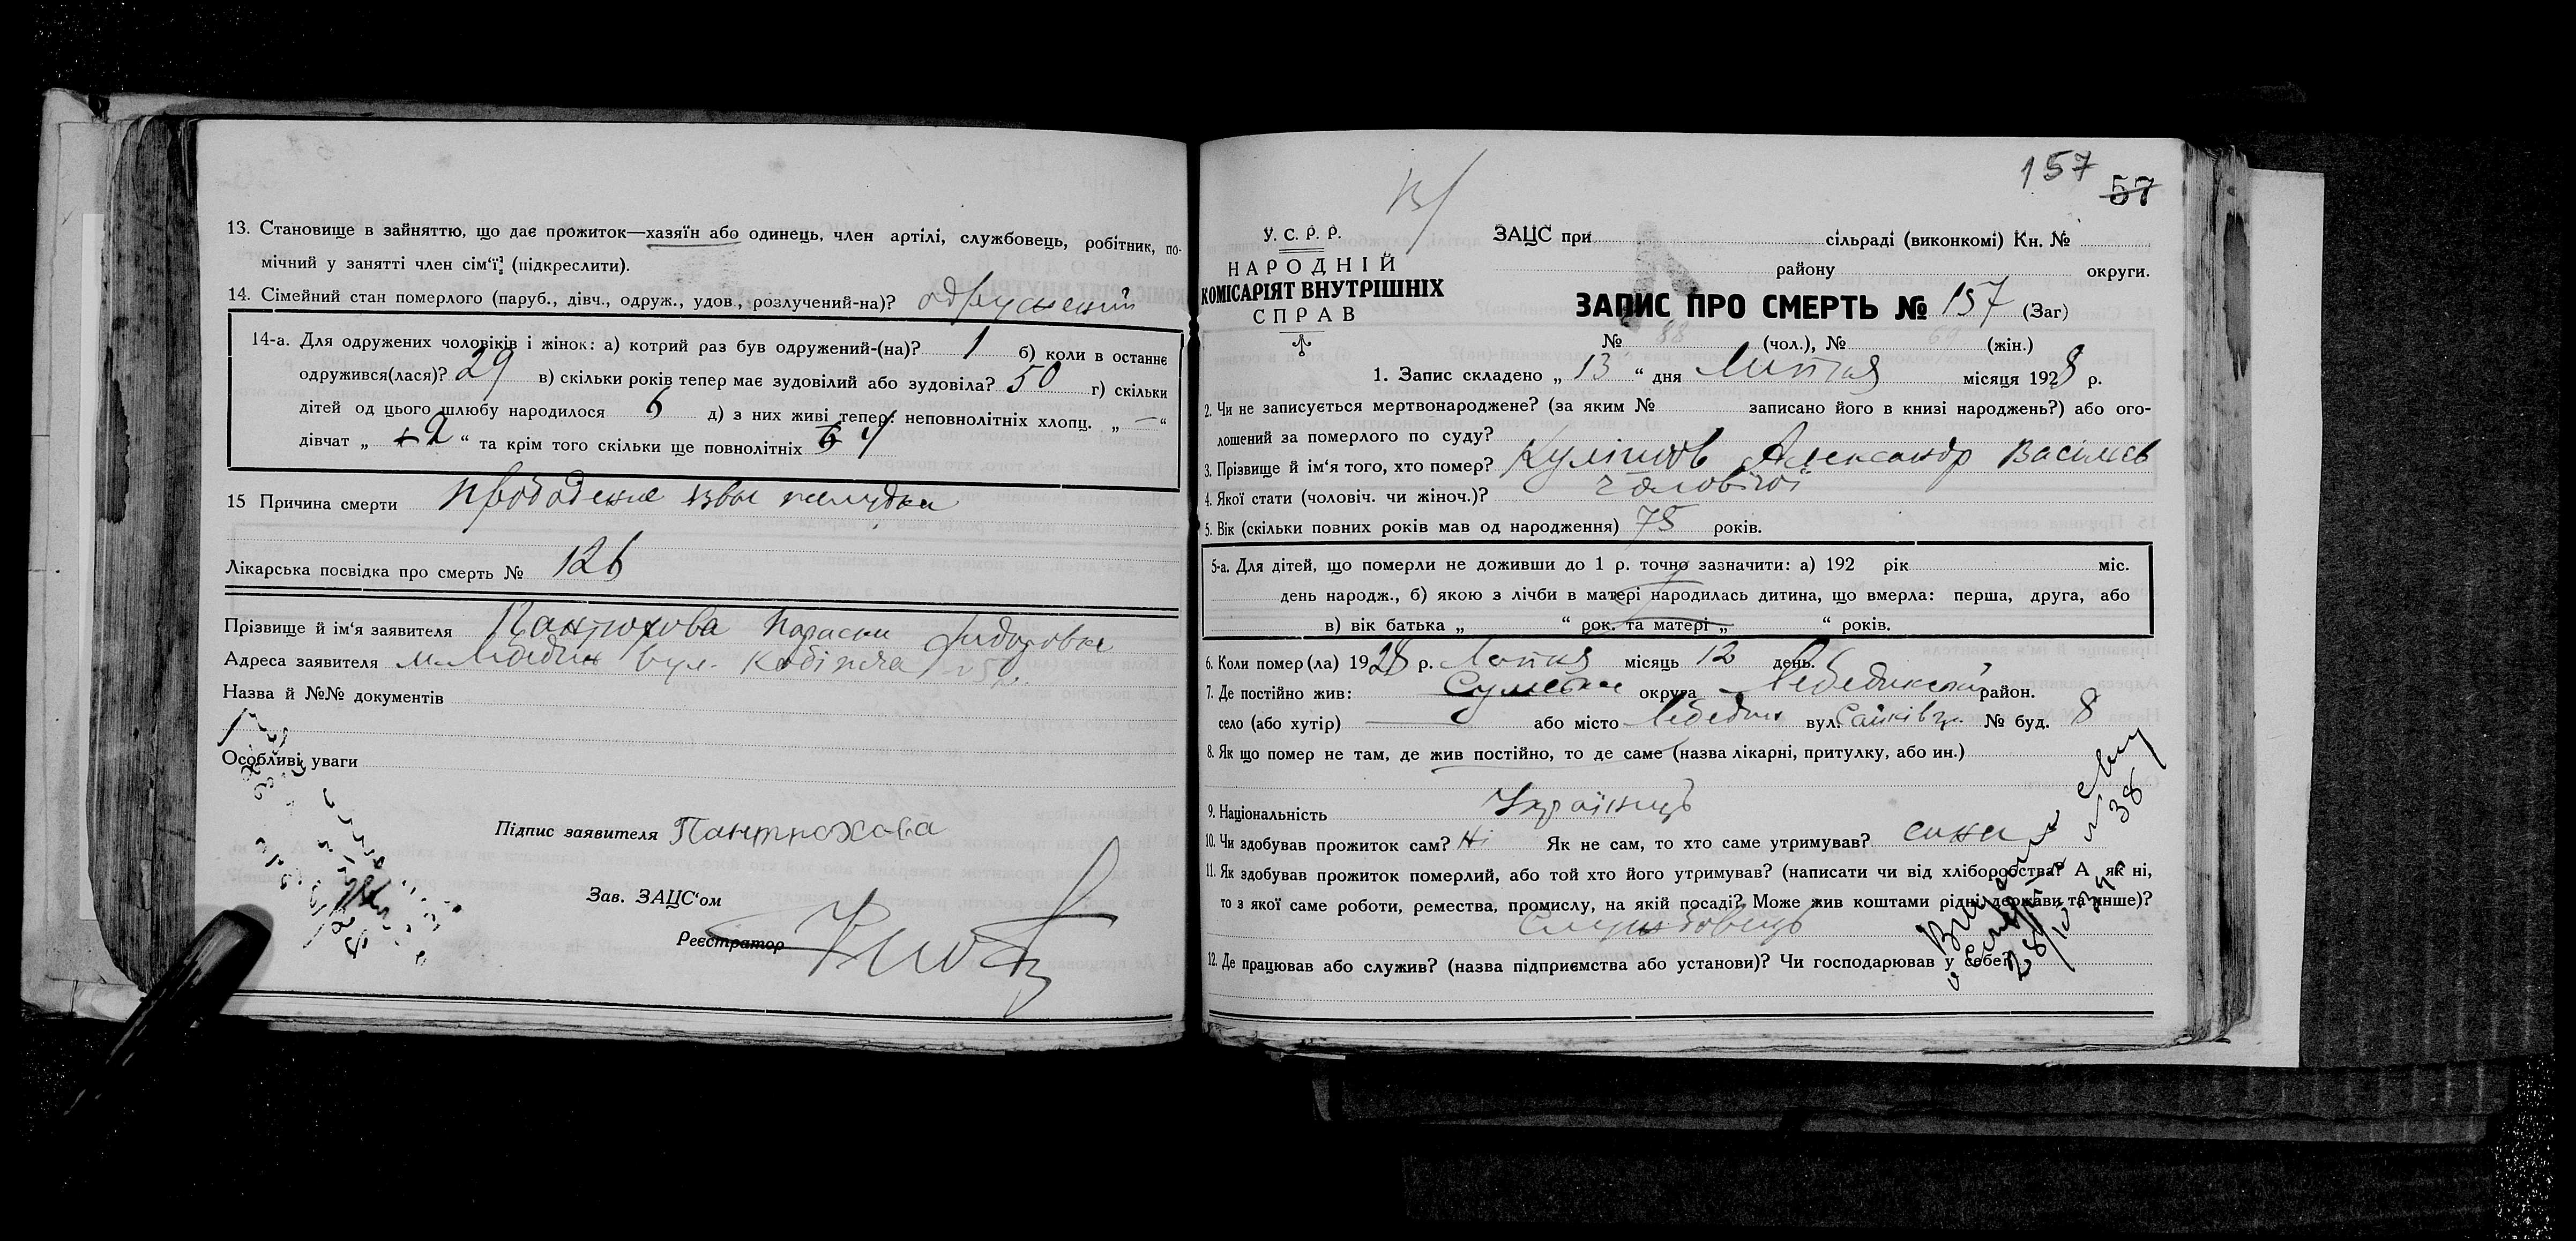 13. Становище в зайняттю, що дає прожиток—хазяїн або одинець, член артілі, службовець, робітник, по-
мічний у занятті член сім'ї (підкреслити).
14. Сімейний стан померлого (паруб., дівч., одруж., удов., розлучений-на)? одружений
14-а. Для одружених чоловіків і жінок: а) котрий раз був одружений-(на)? 1 б) коли в останнє
одружився(лася)? 29 в) скільки років тепер має зудовілий або зудовіла? 50 г) скільки
дітей од цього шлюбу народилося 6 д) з них живі тепер: неповнолітніх хлопц. „ — “
дівчат „ 2 “ та крім того скільки ще повнолітніх 4
15 Причина смерти прободение язвы желудка
Лікарська посвідка про смерть № 126
Прізвище й ім'я заявителя Пантюхова Параски
Адреса заявителя м. Лебедин вул. Кобижча
Назва й №№ документів
Особливі уваги
Підпис заявителя Пантюхова
Зав. ЗАЦС'ом
Реєстратор
157
57
У. С. Р. Р.
НАРОДНІЙ
КОМІСАРІЯТ ВНУТРІШНІХ
СПРАВ
ЗАЦС при сільраді (виконкомі) Кн. №
району округи.
ЗАПИС ПРО СМЕРТЬ № 157 (Заг)
№ 88 (чол.), № (жін.)
1. Запис складено „ 13 “ дня Липня місяця 1928 р.
2. Чи не записується мертвонароджене? (за яким № записано його в книзі народжень?) або ого-
лошений за померлого по суду?
3. Прізвище й ім'я того, хто помер? Кулішов Александр Васильев
4. Якої стати (чоловіч. чи жіноч.)? чоловічої
5. Вік (скільки повних років мав од народження) 75 років.
5-а. Для дітей, що померли не доживши до 1 р. точно зазначити: а) 192 рік міс.
день народж., б) якою з лічби в матері народилась дитина, що вмерла: перша, друга, або
в) вік батька „ “ рок. та матері „ “ років.
6. Коли помер(ла) 1928 р. Липня місяць 12 день.
7. Де постійно жив: Сумська округа Лебединский район.
село (або хутір) — або місто Лебедин вул. № буд. 8
8. Як що помер не там, де жив постійно, то де саме (назва лікарні, притулку, або ин.)
9. Національність Українець
10. Чи здобував прожиток сам? Ні Як не сам, то хто саме утримував? сини
11. Як здобував прожиток померлий, або той хто його утримував? (написати чи від хліборобства? А як ні,
то з якої саме роботи, ремества, промислу, на якій посаді? Може жив коштами рідні держави та инше)?
Службовець
12. Де працював або служив? (назва підприємства або установи)? Чи господарював у себе?